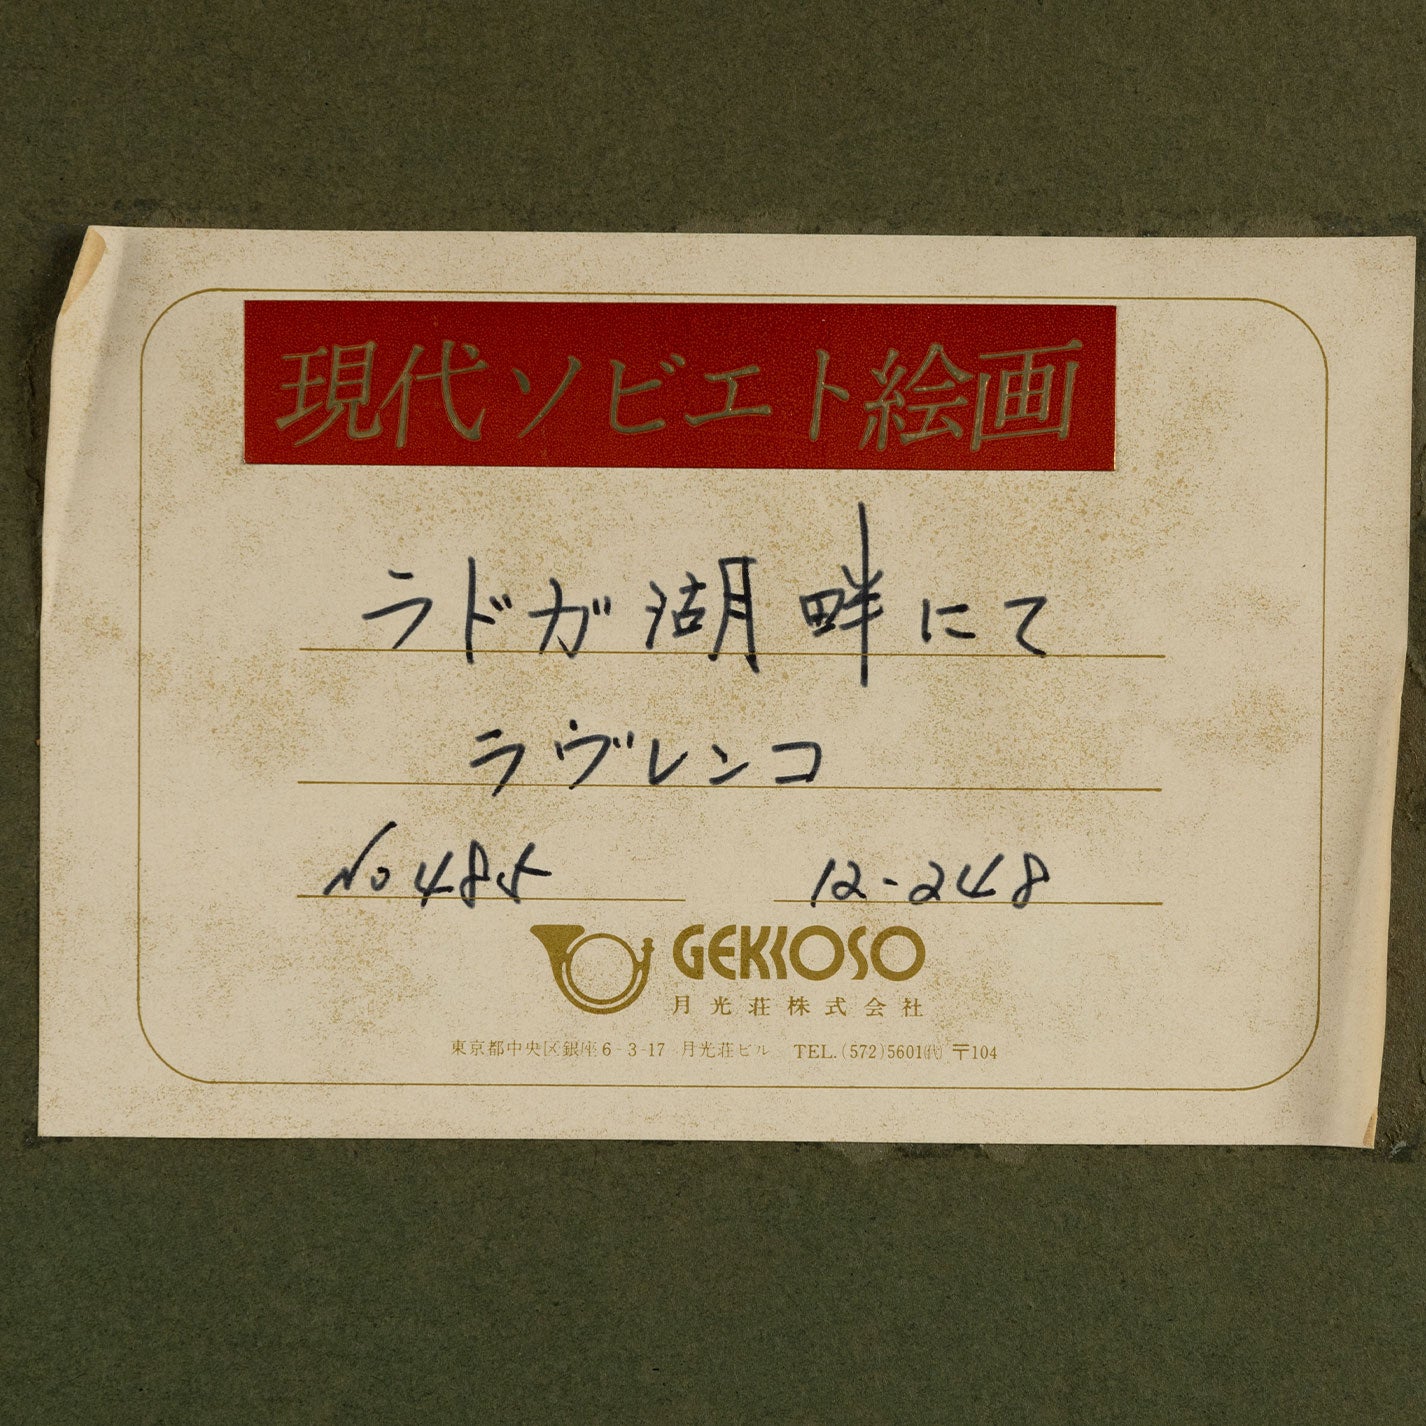 現代ソビエト絵画
ラドガ湖畔にて
ラヴレンコ
No 485 12-248
GEKKOSO
月光荘株式会社
東京都中央区銀座6-3-17 月光荘ビル TEL.(572)5601(代) 〒104